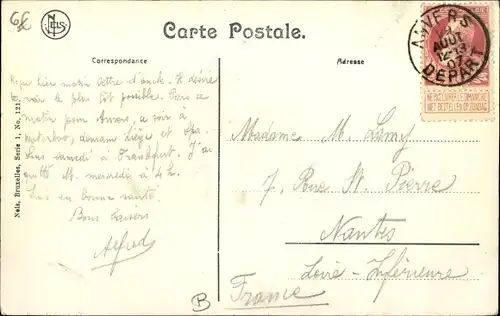 6£
NELS
Carte Postale.
Correspondance
Adresse
ANVERS
AOUT
12-13
07
DEPART
NE PAS LIVRER LE DIMANCHE
NIET BESTELLEN OP ZONDAG
Nels, Bruxelles, Serie 1, No. 121.
Reçu hier matin lettre d'oncle. Il désire
te voir le plus tôt possible. Pars ce
matin pour Anvers, ce soir à
Waterloo, demain Liège et Spa.
Suis samedi à Frankfurt. J'ai
quitté M. mercredi à 4 h.
Suis en bonne santé.
Bons baisers
Alfred
Madame M. Lamy
7, Rue St. Pierre
Nantes
Loire-Inférieure
France
B